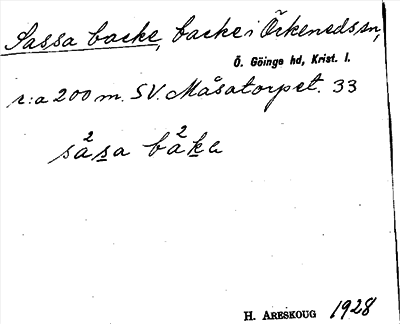 Sassa backe, backe i Örkeneds sn,
Ö. Göinge hd, Krist. l.
r:a 200 m. SV. Måsatorpet. 33
så²sa bå²ke
H. ARESKOUG 1928